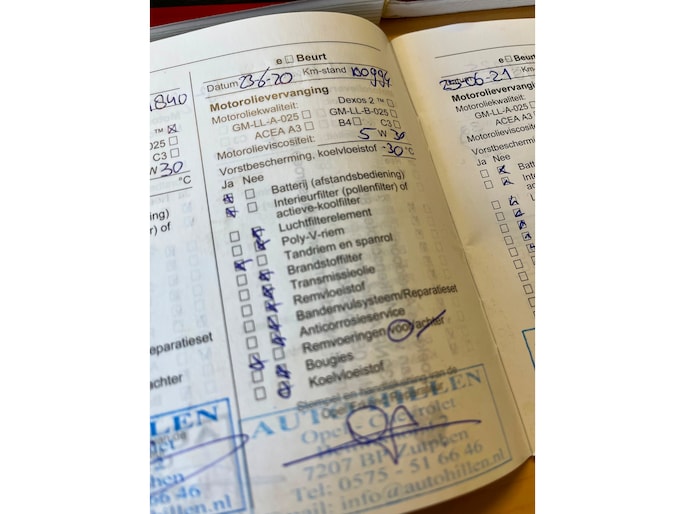 1840
™ ☒
025 ☐
C3 ☐
W 30
°C
ning)
) of
eparatieset
chter
LLEN
6 46
en.nl
e ☐ Beurt
Datum 23-6-20 Km-stand
Motorolievervanging
Motoroliekwaliteit: Dexos 2 ™ ☐
GM-LL-A-025 ☐ GM-LL-B-025 ☐
ACEA A3 ☐ B4 ☐ C3 ☐
Motorolieviscositeit: 5 W 30
Vorstbescherming, koelvloeistof -30 °C
Ja Nee
Batterij (afstandsbediening)
Interieurfilter (pollenfilter) of
actieve-koolfilter
Luchtfilterelement
Poly-V-riem
Tandriem en spanrol
Brandstoffilter
Transmissieolie
Remvloeistof
Bandenvulsysteem/Reparatieset
Anticorrosieservice
Remvoeringen voor/achter
Bougies
Koelvloeistof
Stempel en handtekening van de
AUTO HILLEN
Opel - Chevrolet
7207 BP Zutphen
Tel: 0575 - 51 66 46
Email: info@autohillen.nl
e ☐ Beurt
25-06-21 Km-
Motorolievervanging
Motoroliekwaliteit:
GM-LL-A-025
ACEA A3
Motorolieviscositeit:
Vorstbescherming, ko
Ja Nee
Batt
Inte
act
AUT
7
Te
Em